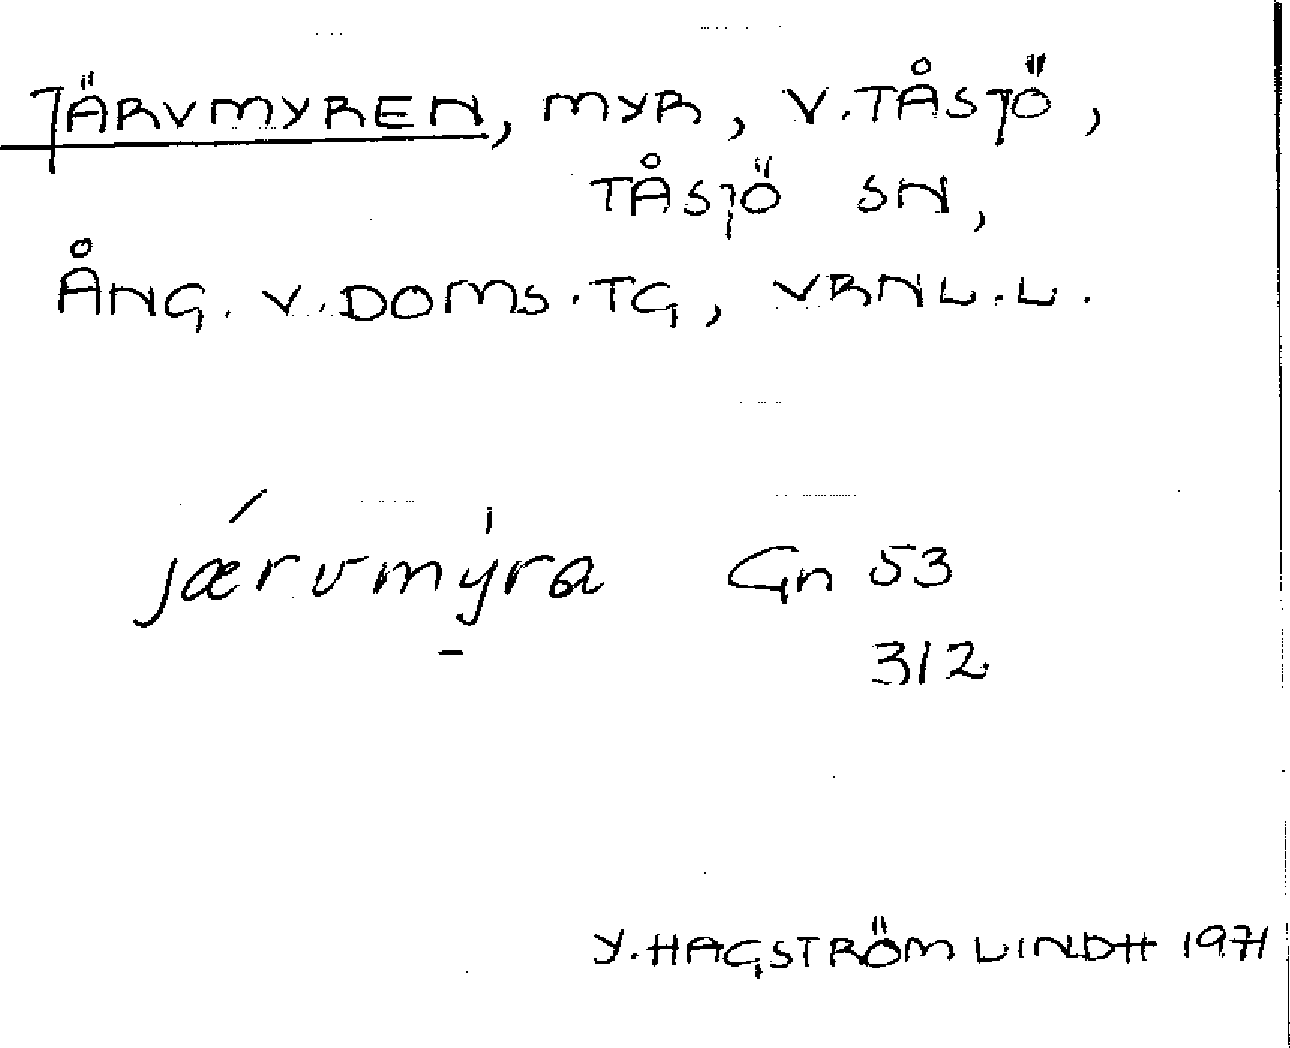 JÄRVMYREN, MYR, V.TÅSJÖ,
TÅSJÖ SN,
ÅNG. V.DOMS.TG, VRNL.L.
jærvmýra Gn 53
312
Y.HAGSTRÖM LINDH 1971